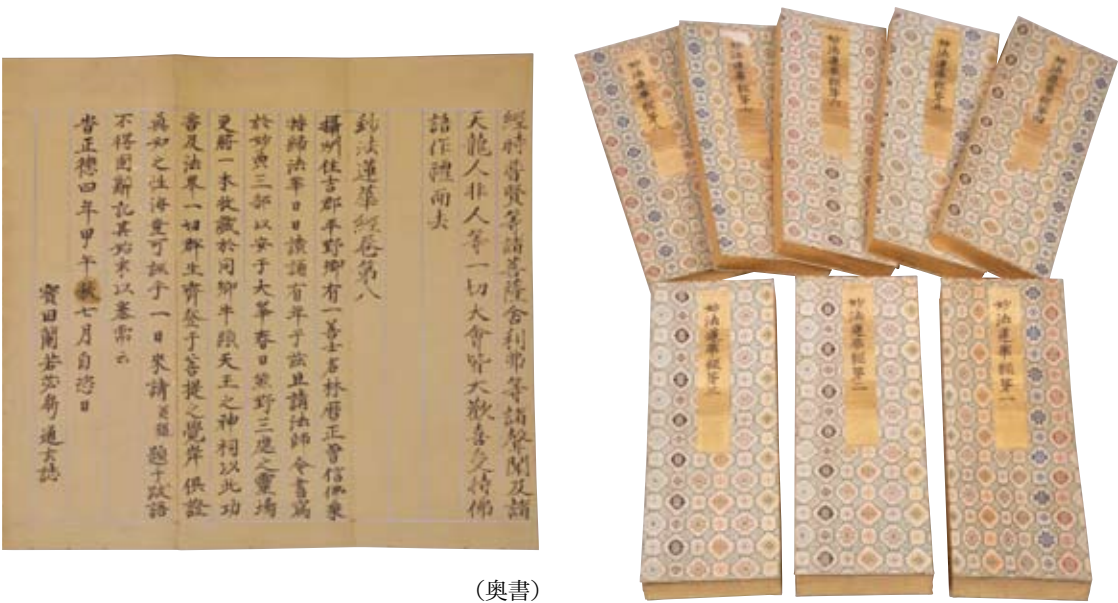 經時普賢等諸菩薩舍利弗等諸聲聞及諸
天龍人非人等一切大會皆大歡喜受持佛
語作禮而去
妙法蓮華經卷第八
攝州住吉郡平野鄉有一善士名林曆正曾信佛乘
持歸法華日日讀誦有年于茲且請法師令書寫
於妙典三部以安于大峯春日熊野三處之靈場
更謄一本收藏於同鄉牛頭天王之神祠以此功
普及法界一切群生齊登于菩提之覺岸俱證
真如之性海豈可誣乎一日來請題于故語
不得固辭記其始末以塞需云
旹正德四年甲午秋七月自恣日
寶田蘭若苾芻通玄誌
（奥書）
妙法蓮華經第六
妙法蓮華經第五
妙法蓮華經第四
妙法蓮華經第三
妙法蓮華經第二
妙法蓮華經第一